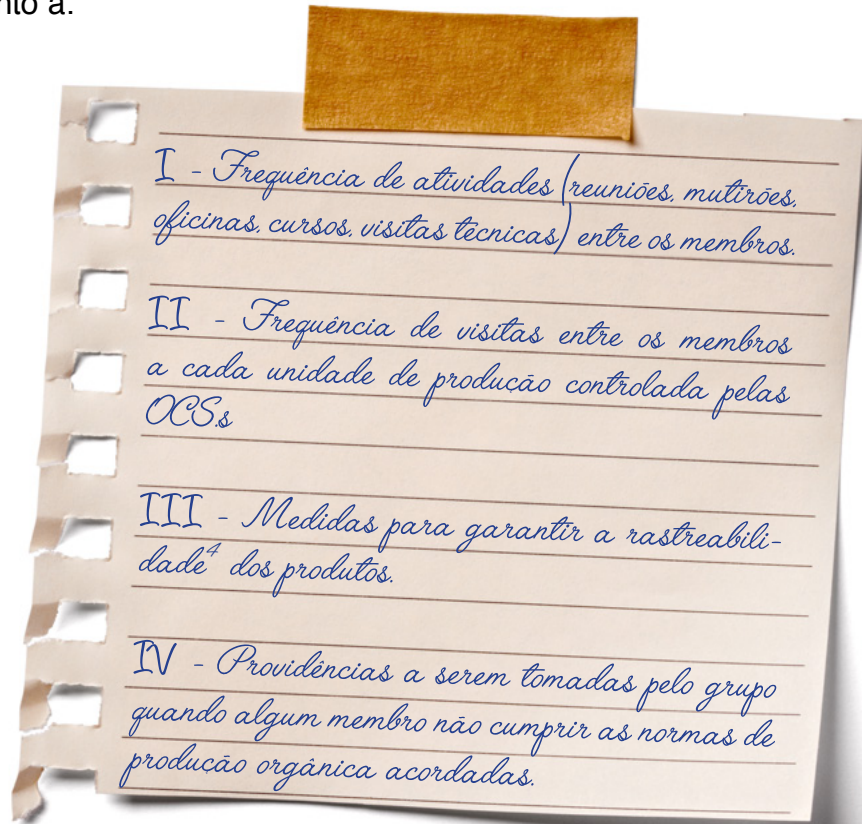 nto a:
I - Frequência de atividades (reuniões, mutirões,
oficinas, cursos, visitas técnicas) entre os membros.
II - Frequência de visitas entre os membros
a cada unidade de produção controlada pelas
OCS.s
III - Medidas para garantir a rastreabili-
dade⁴ dos produtos.
IV - Providências a serem tomadas pelo grupo
quando algum membro não cumprir as normas de
produção orgânica acordadas.